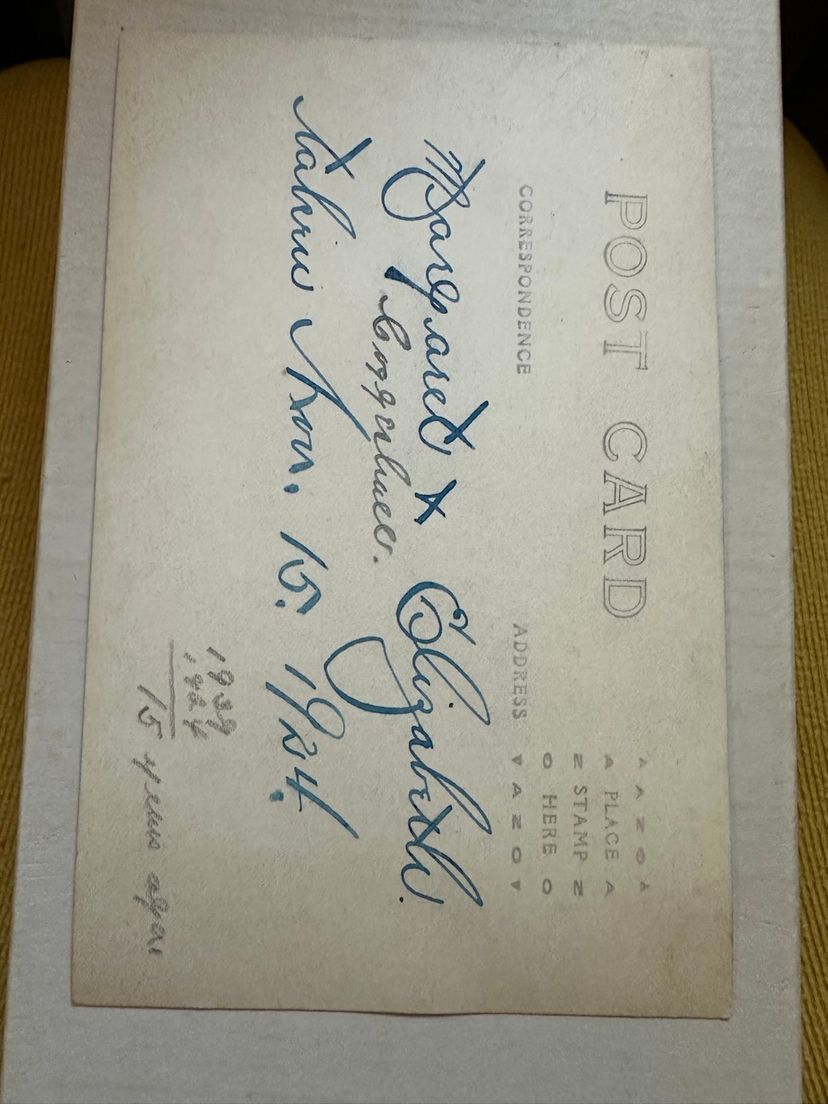 POST CARD
AZO
PLACE
STAMP
HERE
AZO
CORRESPONDENCE
ADDRESS
Margaret & Elizabeth.
Taken Nov. 15. 1924.
1939
1924
15 years ago